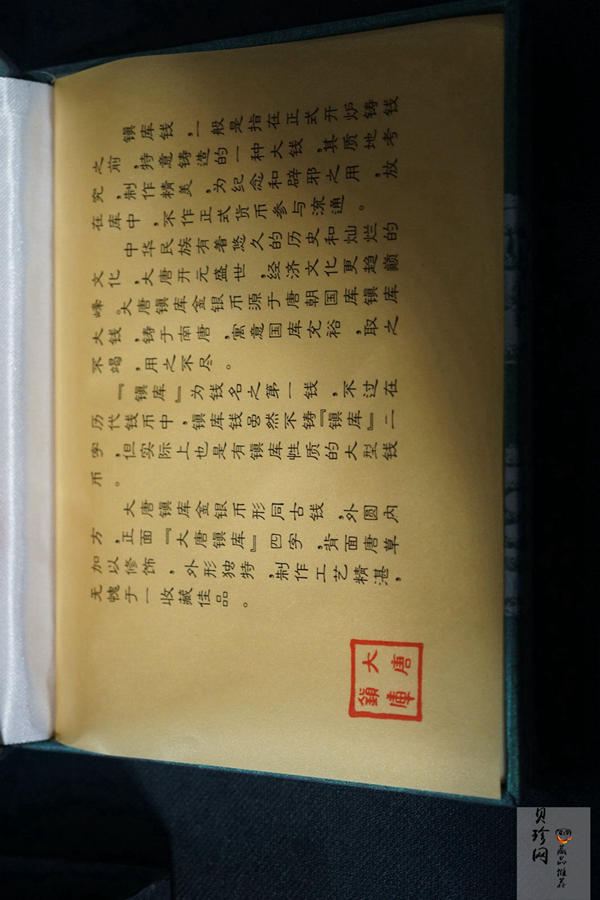 镇库钱，一般是指在正式开炉铸钱
之前，特意铸造的一种大钱，其质地考
究，制作精美，为纪念和辟邪之用，放
在库中，不作正式货币参与流通。
中华民族有着悠久的历史和灿烂的
文化，大唐开元盛世，经济文化更趋巅
峰。大唐镇库金银币源于唐朝国库镇库
大钱，铸于南唐，寓意国库充裕，取之
不竭，用之不尽。
『镇库』为钱名之第一钱，不过在
历代钱币中，镇库钱虽然不铸『镇库』二
字，但实际上也是有镇库性质的大型钱
币。
大唐镇库金银币形同古钱，外圆内
方，正面『大唐镇库』四字，背面唐草
加以修饰，外形独特，制作工艺精湛，
无愧于一收藏佳品。
大唐
鎮庫
贝珍网